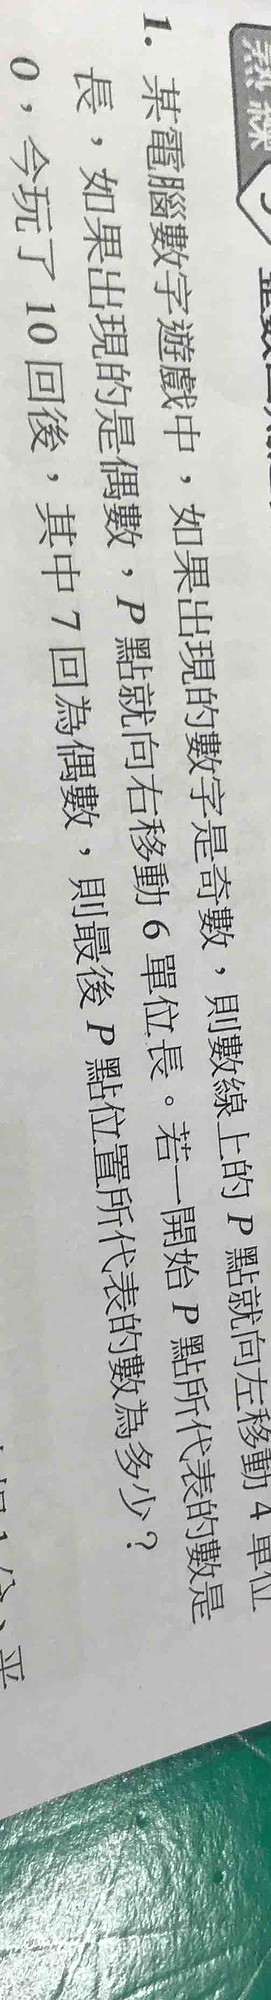 熟練
1. 某電腦數字遊戲中，如果出現的數字是奇數，則數線上的 P 點就向左移動 4 單位
長，如果出現的是偶數，P 點就向右移動 6 單位長。若一開始 P 點所代表的數是
0，今玩了 10 回後，其中 7 回為偶數，則最後 P 點位置所代表的數為多少？